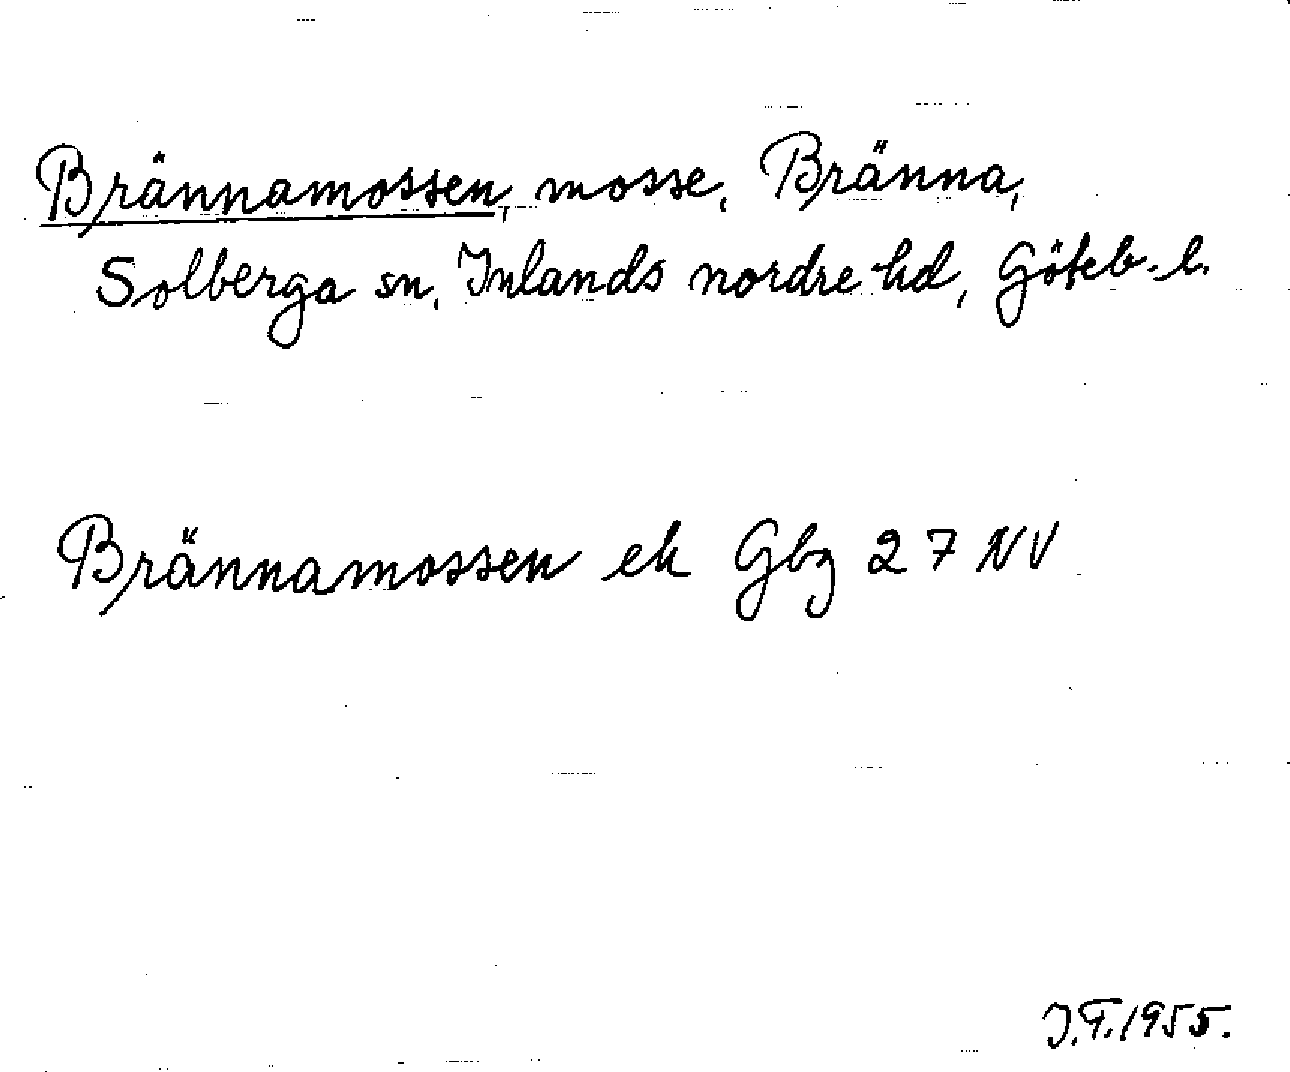 Brännamossen, mosse, Bränna,
Solberga sn, Inlands nordre hd, Göteb. l.
Brännamossen ek Gbg 27 NV
J.F. 1955.